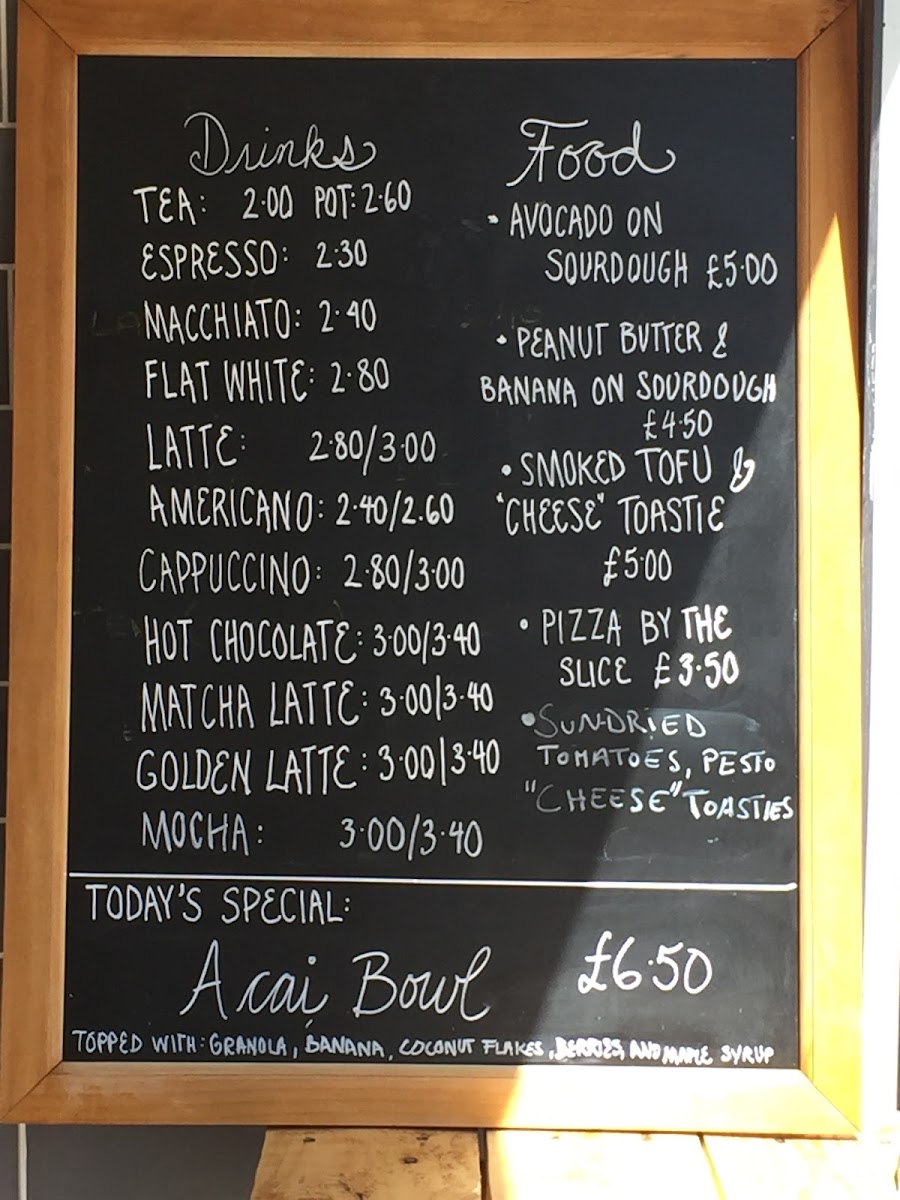 Drinks
TEA: 2.00 POT: 2.60
ESPRESSO: 2.30
MACCHIATO: 2.40
FLAT WHITE: 2.80
LATTE: 2.80/3.00
AMERICANO: 2.40/2.60
CAPPUCCINO: 2.80/3.00
HOT CHOCOLATE: 3.00/3.40
MATCHA LATTE: 3.00/3.40
GOLDEN LATTE: 3.00/3.40
MOCHA: 3.00/3.40
Food
• AVOCADO ON
SOURDOUGH £5.00
• PEANUT BUTTER &
BANANA ON SOURDOUGH
£4.50
• SMOKED TOFU &
"CHEESE" TOASTIE
£5.00
• PIZZA BY THE
SLICE £3.50
• SUNDRIED
TOMATOES, PESTO
"CHEESE" TOASTIES
TODAY'S SPECIAL:
Acai Bowl £6.50
TOPPED WITH: GRANOLA, BANANA, COCONUT FLAKES, BERRIES, AND MAPLE SYRUP